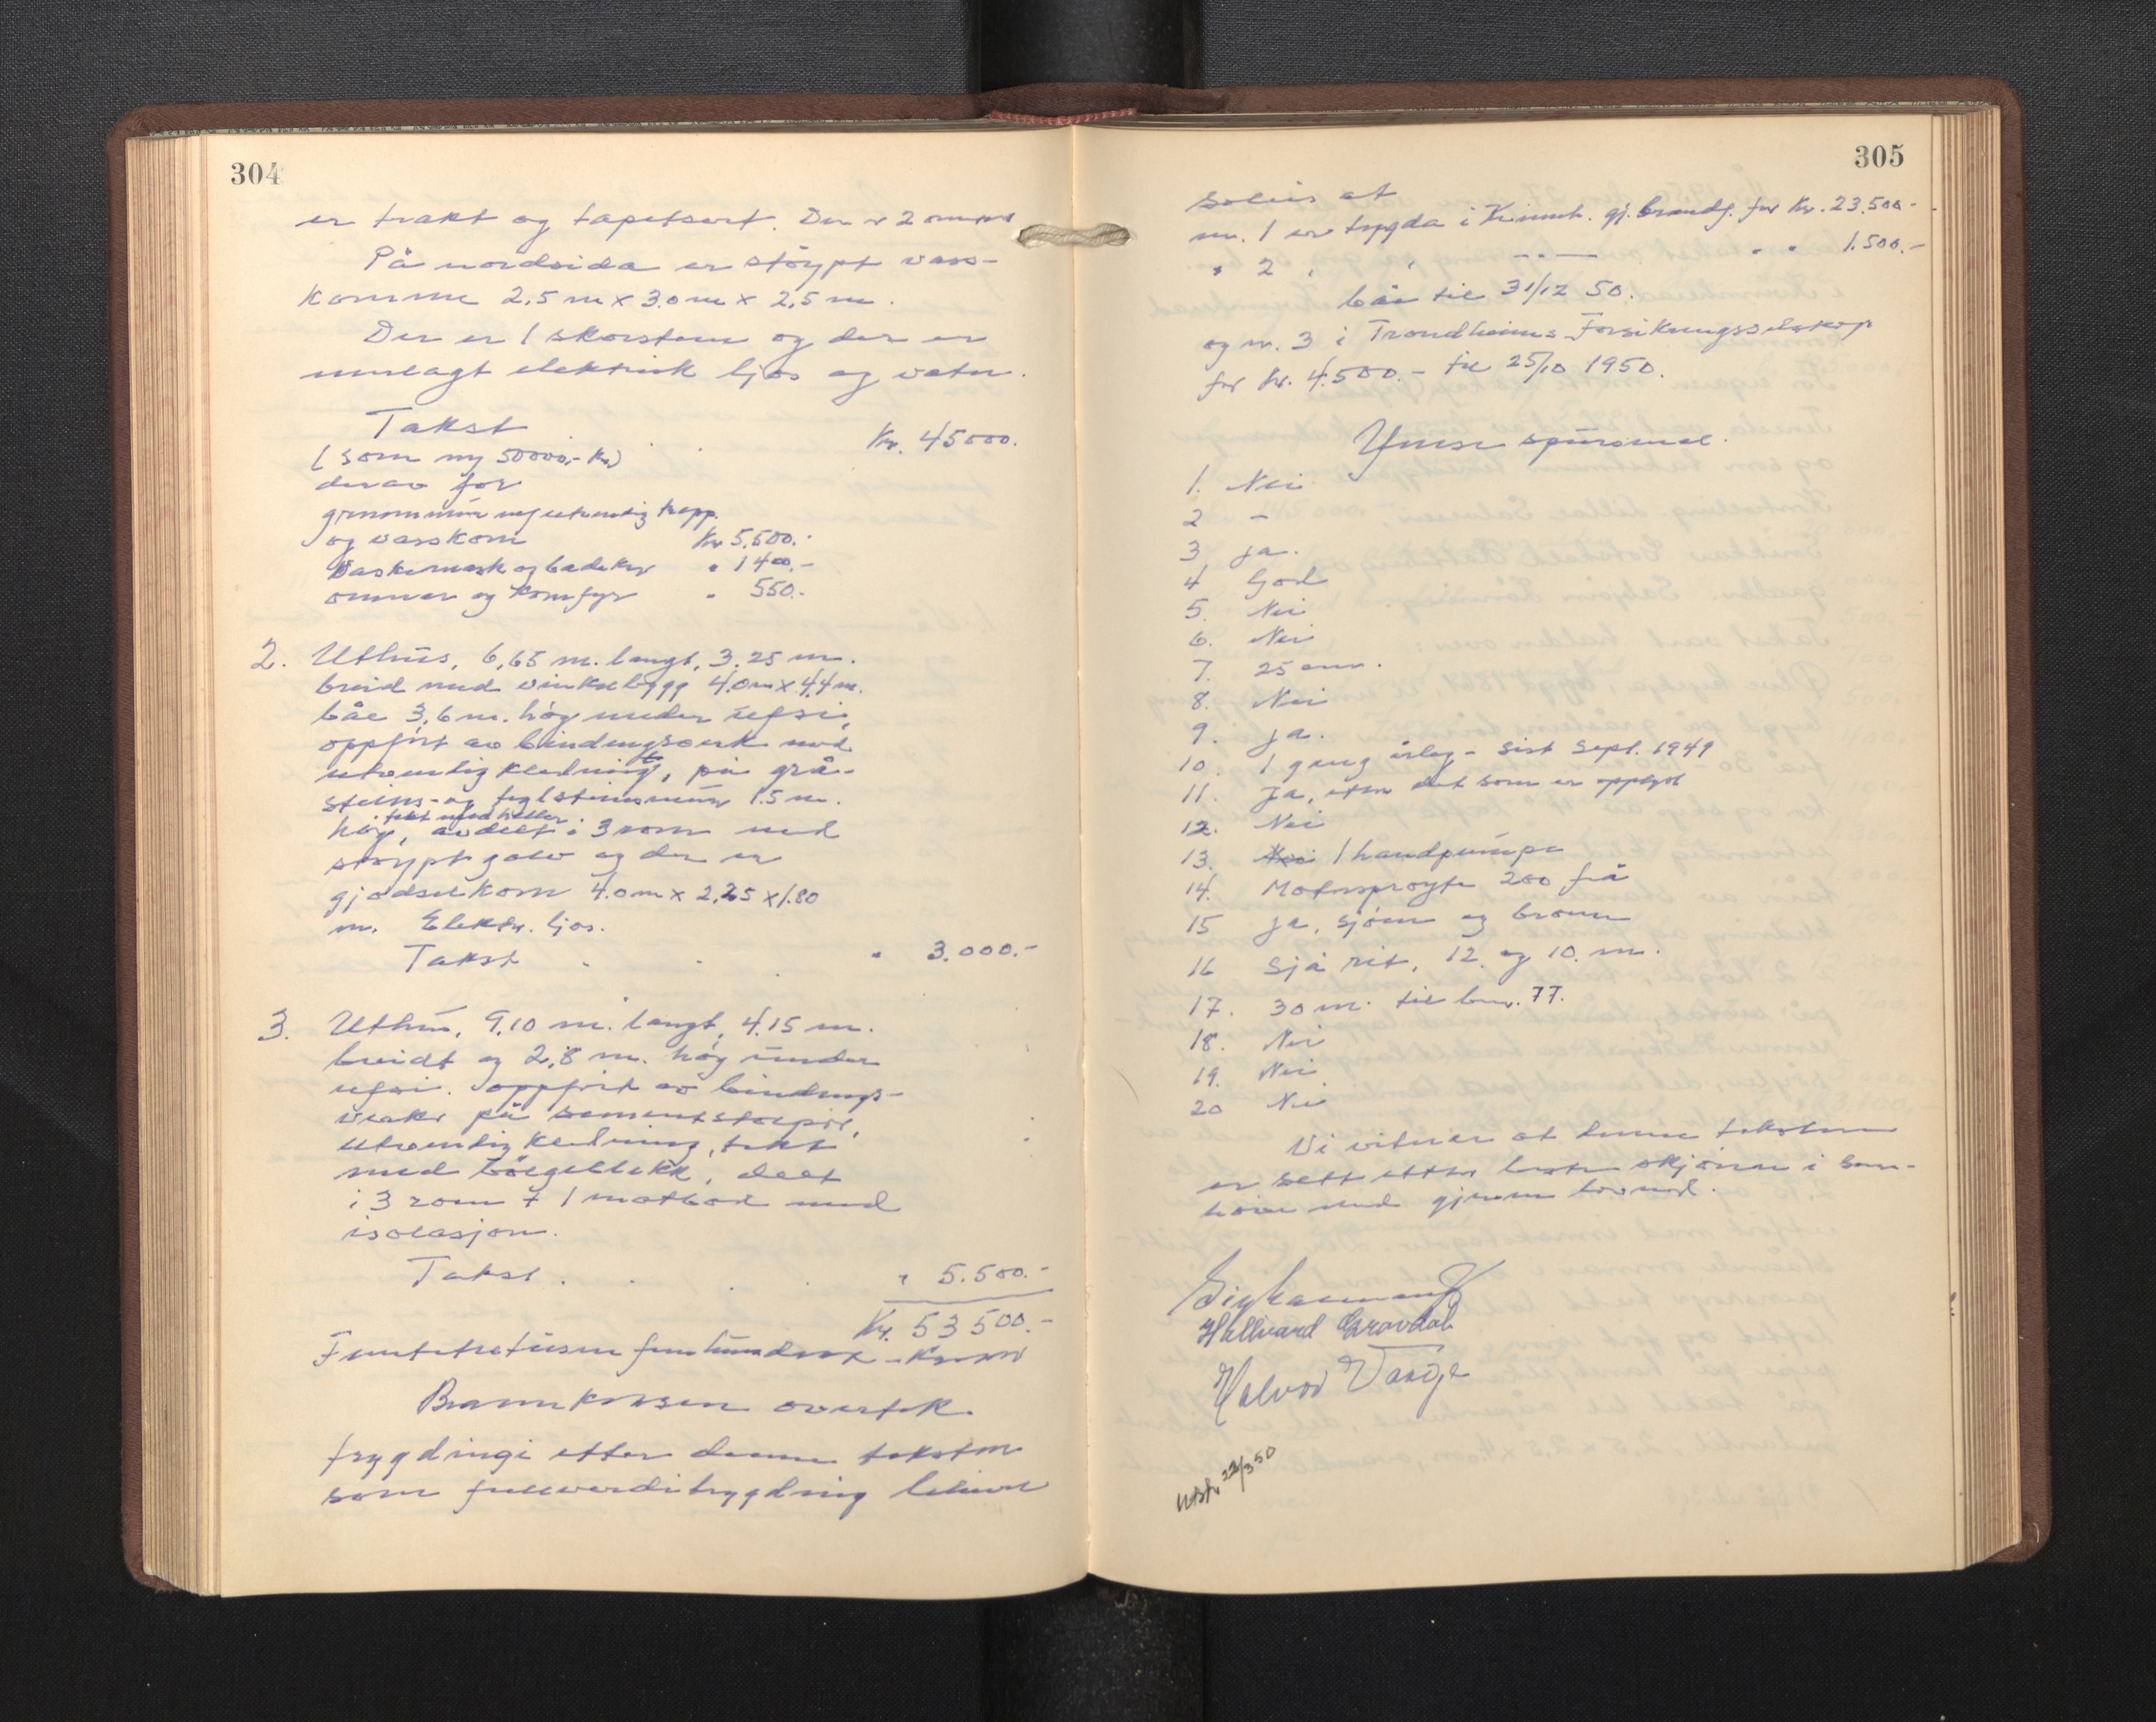 304
er trakt og tapetsert. Der er 2 omnar
På nordsida er støypt vass-
komme 2,5 m x 3.0 m x 2,5 m.
Der er 1 skorstein og der er
innlagt elektrisk ljos og vatn.
Takst
Kr. 45000.
(som ny 50000,- Kr)
derav for
grunnmur m/ utvendig trapp.
og vasskom Kr 5.500.-
Vaskemask og badekar " 1400.-
omnar og komfyr " 550.-
2. Uthus, 6,65 m. langt, 3.25 m.
breid med vinkelbygg 4.0m x 4,4 m.
båe 3,6 m. høg under ufsi,
oppført av bindingsverk med
utvendig kledning, på grå-
steins- og teglsteinsmur 1.5 m.
tekt med heller
høg, avdelt i 3 rom med
støypt golv og der er
gjødselkom 4.0 m x 2,25 x 1.80
m. Elektr. ljos.
Takst " 3.000.-
3. Uthus, 9,10 m. langt, 4.15 m.
breidt og 2,8 m. høg under
ufsi. oppført av bindings-
verk på sementstolpar,
utvendig kledning, tekt
med bølgeblikk, delt
i 3 rom + 1 matbod med
isolasjon.
Takst. " 5.500.-
Kr. 53500.-
Femtitretusen femhundre - Kroner
Brannkassen overtek
trygdingi etter denne taksten
som fullverditrygding
305
soleis at
nr. 1 er trygda i Kinnh. gj. brandf. for Kr. 23.500-
" 2 " " -"- " " 1.500.-
båe til 31/12 50.
og nr. 3 i Trondheims Forsikringsselskap
for Kr. 4.500.- til 25/10 1950.
Ymse spursmål.
1. Nei
2 -
3 ja.
4 God
5. Nei
6. Nei
7. 25 cm.
8. Nei
9. ja.
10. 1 gang årleg - sist Sept. 1949
11. Ja, etter det som er opplyst
12. Nei
13. Nei 1 handpumpe
14. Motorsprøyte 200 frå
15 Ja, sjøen og brønn
16 Sjå rit, 12 og 10. m.
17. 30 m. til bnr. 77.
18. Nei
19. Nei
20 Nei
Vi vitnar at denne taksten
er sett etter beste skjønn i sam-
høve med gjeldande
Hallvard Grovdal
Halvor Vaage
Utskr 22/3 50